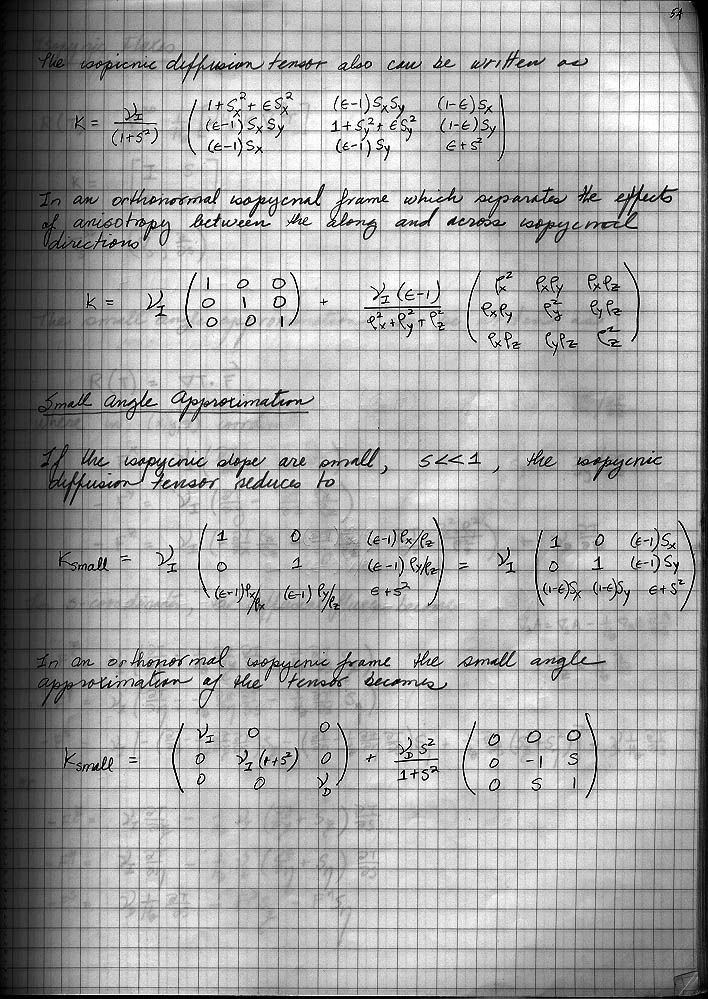 54
The isopicnic diffusion tensor also can be written as
K = ν_I/(1+S²) ( 1+S_x²+ϵS_x² (ϵ-1)S_xS_y (1-ϵ)S_x
(ϵ-1)S_xS_y 1+S_y²+ϵS_y² (1-ϵ)S_y
(ϵ-1)S_x (ϵ-1)S_y ϵ+S² )
In an orthonormal isopycnal frame which separates the effects
of anisotropy between the along and across isopycnal
directions
K = ν_I ( 1 0 0
0 1 0
0 0 1 ) + ν_I(ϵ-1)/(ρ_x²+ρ_y²+ρ_z²) ( ρ_x² ρ_xρ_y ρ_xρ_z
ρ_xρ_y ρ_y² ρ_yρ_z
ρ_xρ_z ρ_yρ_z ρ_z² )
Small Angle Approximation
If the isopycnic slope are small, S<<1, the isopycnic
diffusion tensor reduces to
K_small = ν_I ( 1 0 (ϵ-1)ρ_x/ρ_z
0 1 (ϵ-1)ρ_y/ρ_z
(ϵ-1)ρ_x/ρ_x (ϵ-1)ρ_y/ρ_z ϵ+S² ) = ν_I ( 1 0 (ϵ-1)S_x
0 1 (ϵ-1)S_y
(1-ϵ)S_x (1-ϵ)S_y ϵ+S² )
In an orthonormal isopycnic frame the small angle
approximation of the tensor becomes
K_small = ( ν_I 0 0
0 ν_I(1+S²) 0
0 0 ν_D ) + ν_D S²/(1+S²) ( 0 0 0
0 -1 S
0 S 1 )